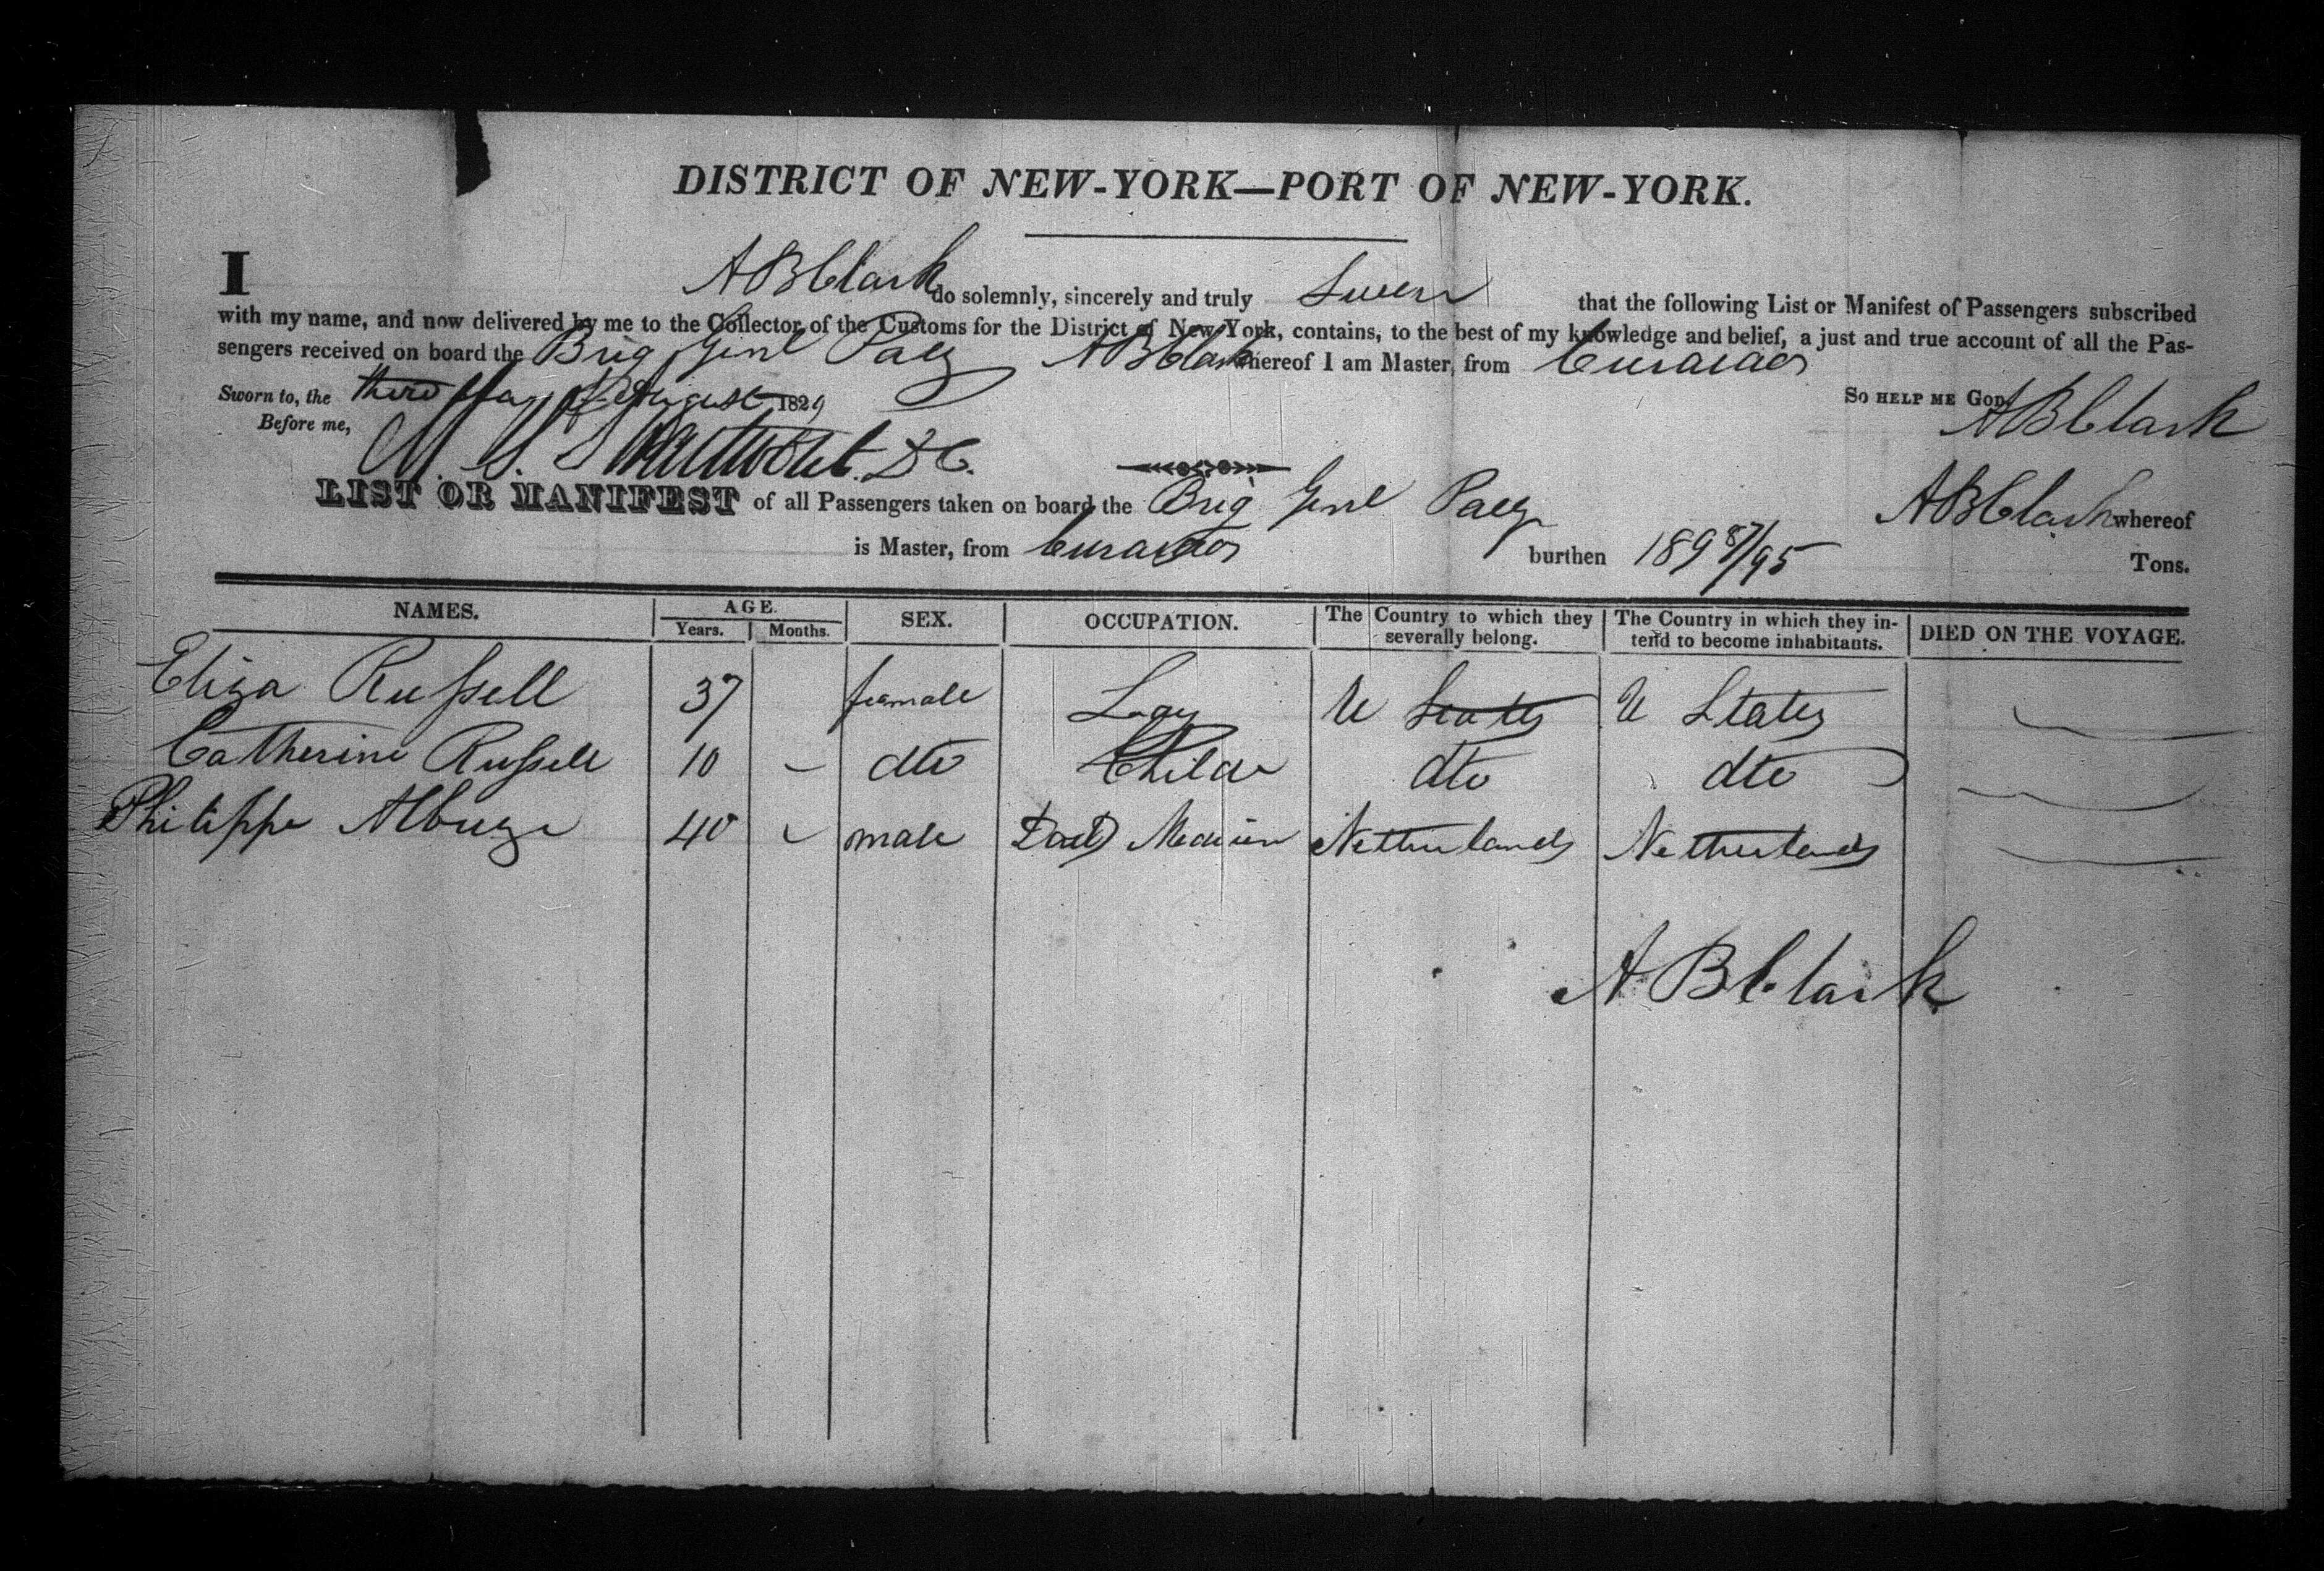 DISTRICT OF NEW-YORK—PORT OF NEW-YORK.
I A B Clark do solemnly, sincerely and truly Swear that the following List or Manifest of Passengers subscribed
with my name, and now delivered by me to the Collector of the Customs for the District of New-York, contains, to the best of my knowledge and belief, a just and true account of all the Pas-
sengers received on board the Brig Genl Paez A B Clark whereof I am Master, from Curacao
Sworn to, the third day of August 1829 So HELP ME GOD.
Before me, A B Clark
D C.
LIST OR MANIFEST of all Passengers taken on board the Brig Genl Paez A B Clark whereof
is Master, from Curacao burthen 189 87/95 Tons.
NAMES. AGE. Years. Months. SEX. OCCUPATION. The Country to which they severally belong. The Country in which they in-tend to become inhabitants. DIED ON THE VOYAGE.
Eliza Russell 37 female Lady U States U States
Catherine Russell 10 - dto Child dto dto
Philippe 40 - male Netherlands Netherlands
A B Clark